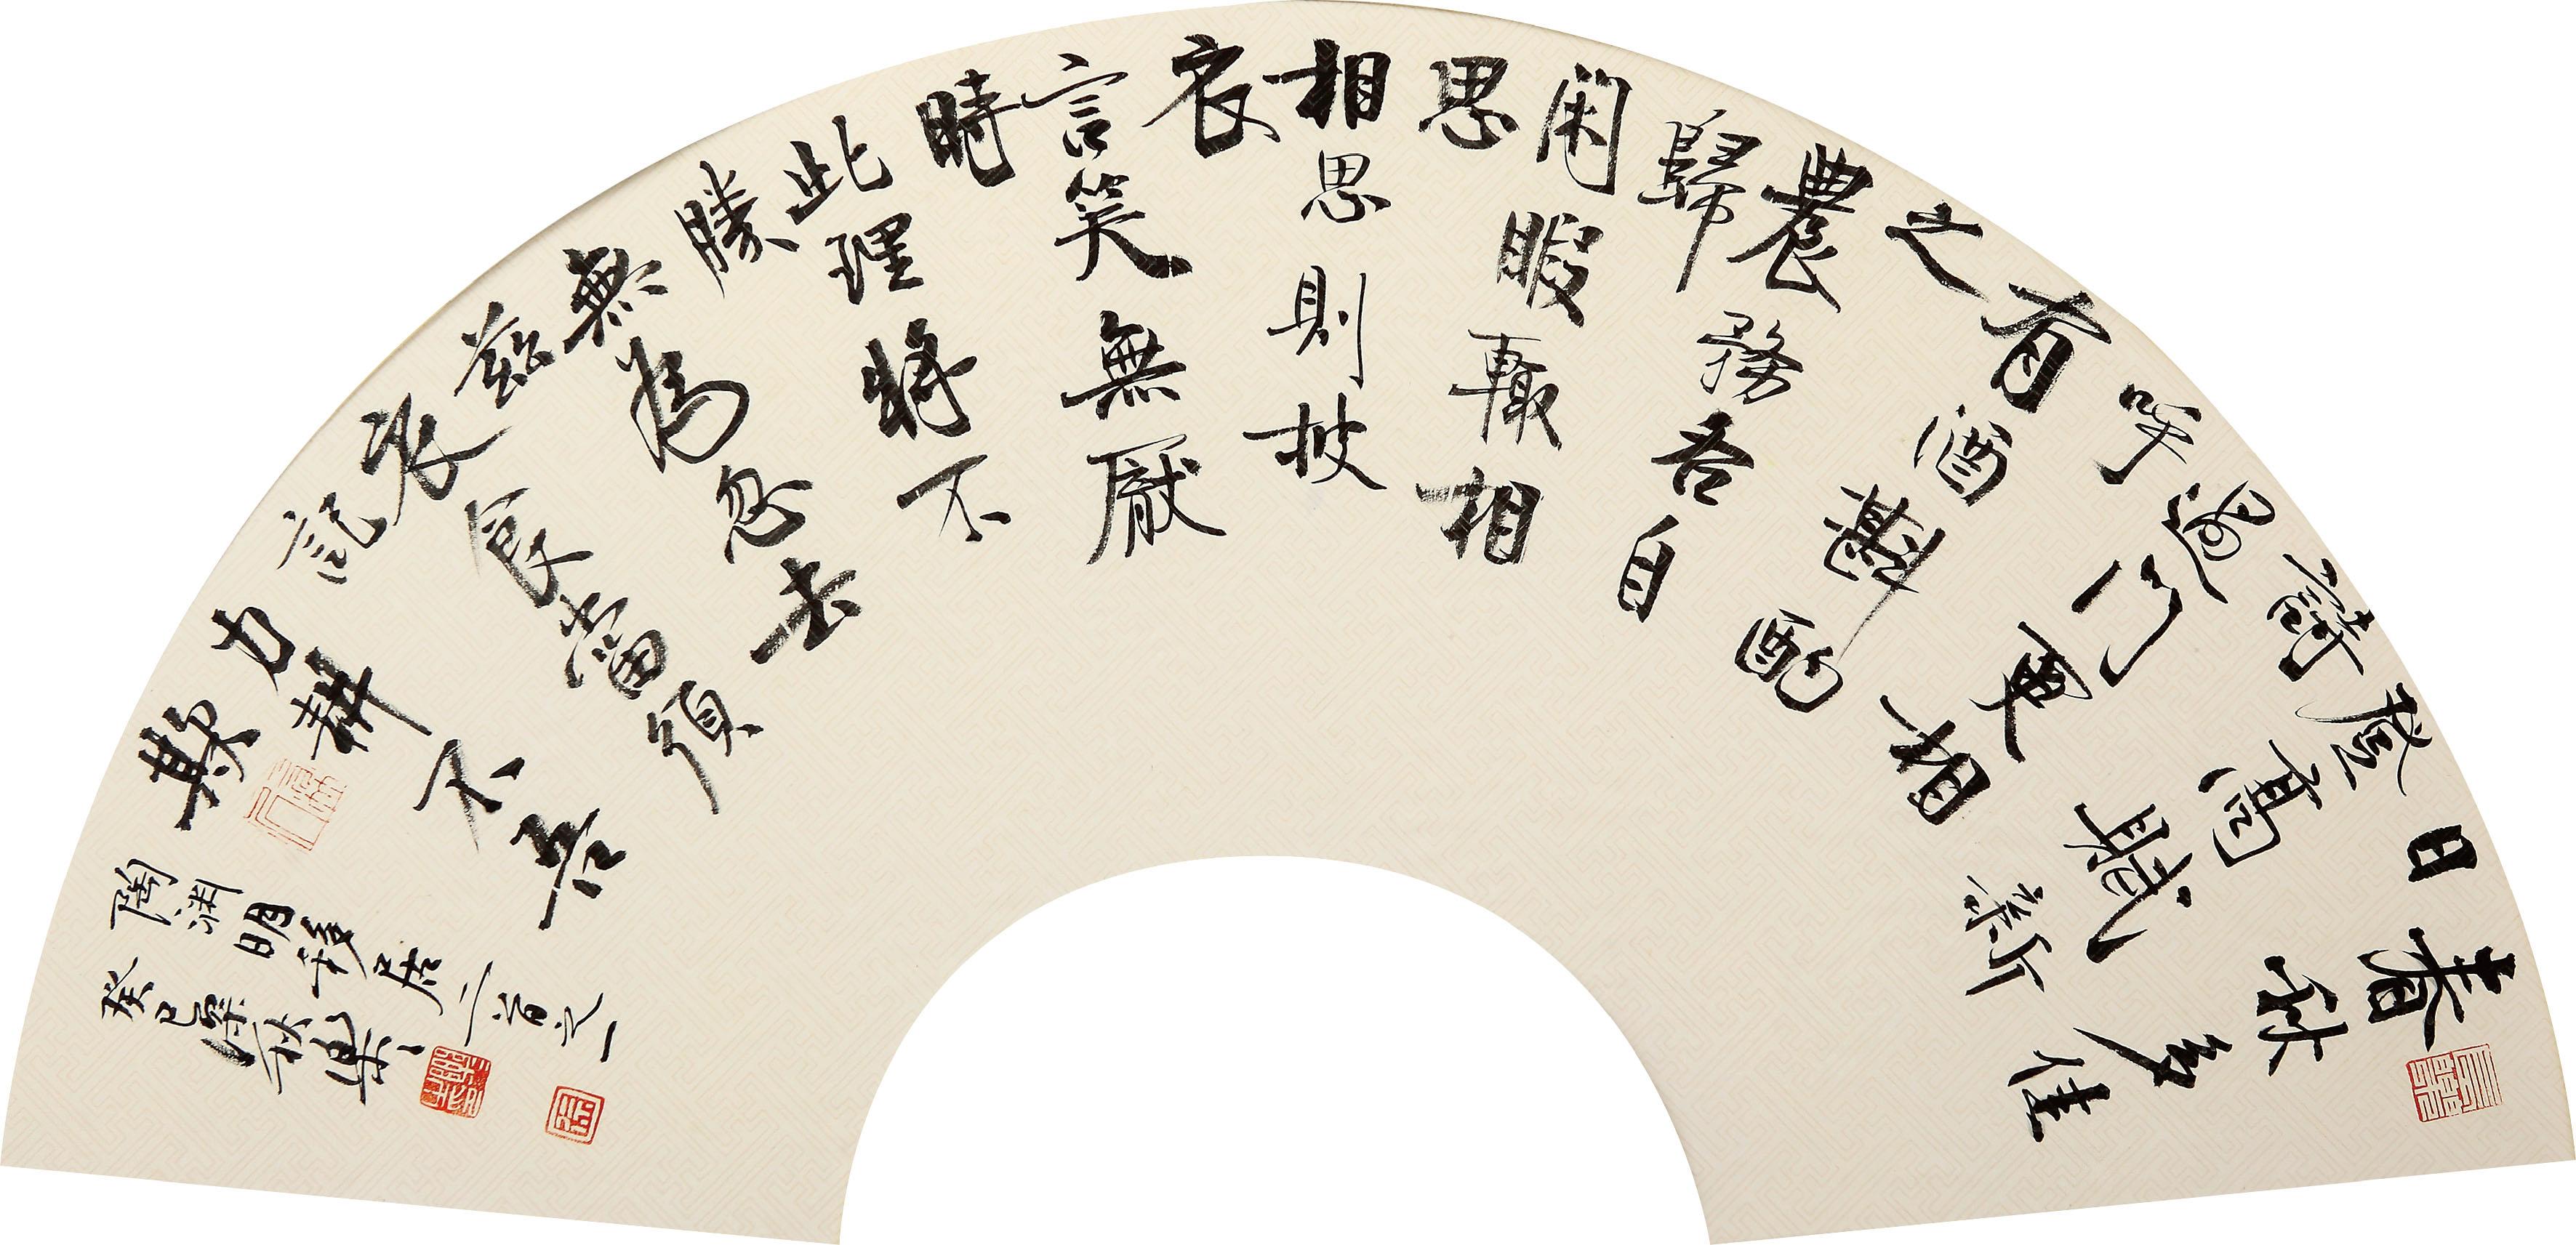 春秋多佳
日
登高賦新
詩
過門更相
呼
有酒斟酌
之
農務各自
歸
閑暇輒相
思
相思則披
衣
言笑無厭
時
此理將不
勝
無為忽去
茲
衣食當須
記
力耕不吾
欺
陶淵明移居二首之一
癸巳